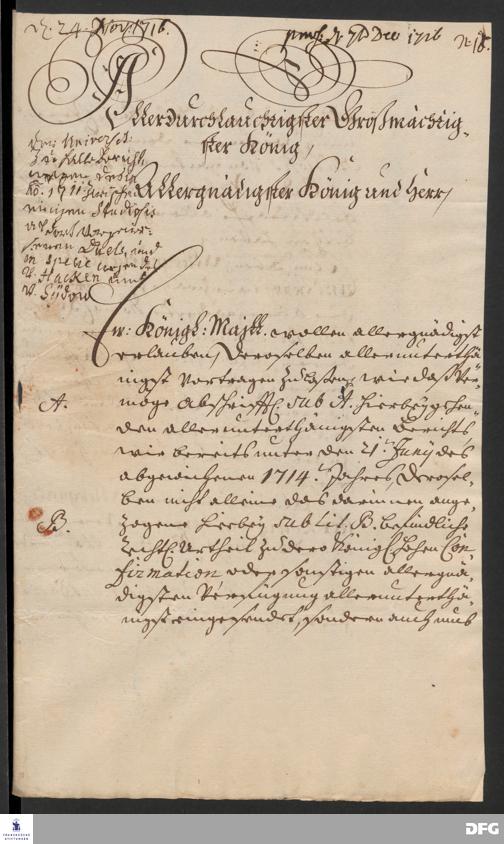 d. 24. Nov. 1716.
præs. d. 7t Dec 1716
N 18.
Allerdurchlauchtigster Großmächtig-
ster König,
Allergnädigster König und Herr,
Der Universit:
zu Halle bericht,
wegen derer
1711 zwischen
einigen Studiosis
Duels, und
in specie wegen des
v. Hacken und
v. Sydow
Ew: Königl: Majtt. wollen allergnädigst
erlauben, Deroselben allerunterthä-
nigst vortragen zu laßen, wie daß ver-
A.
möge abschrifftl. sub A. hierbeygehen-
den allerunterthänigsten Berichts
wir bereits unter den 21t. Junij des
abgewichenen 1714.t Jahres Derosel-
ben nicht alleine das darinnen ange-
B.
zogene hierbey sub Lit. B. befindliche
rechtl. Urtheil zu dero Königl. hohen Con-
firmation oder sonstigen allergnä-
digsten Verfügung allerunterthä-
nigst eingesendet, sondern auch umb
FRANCKESCHE
STIFTUNGEN
DFG